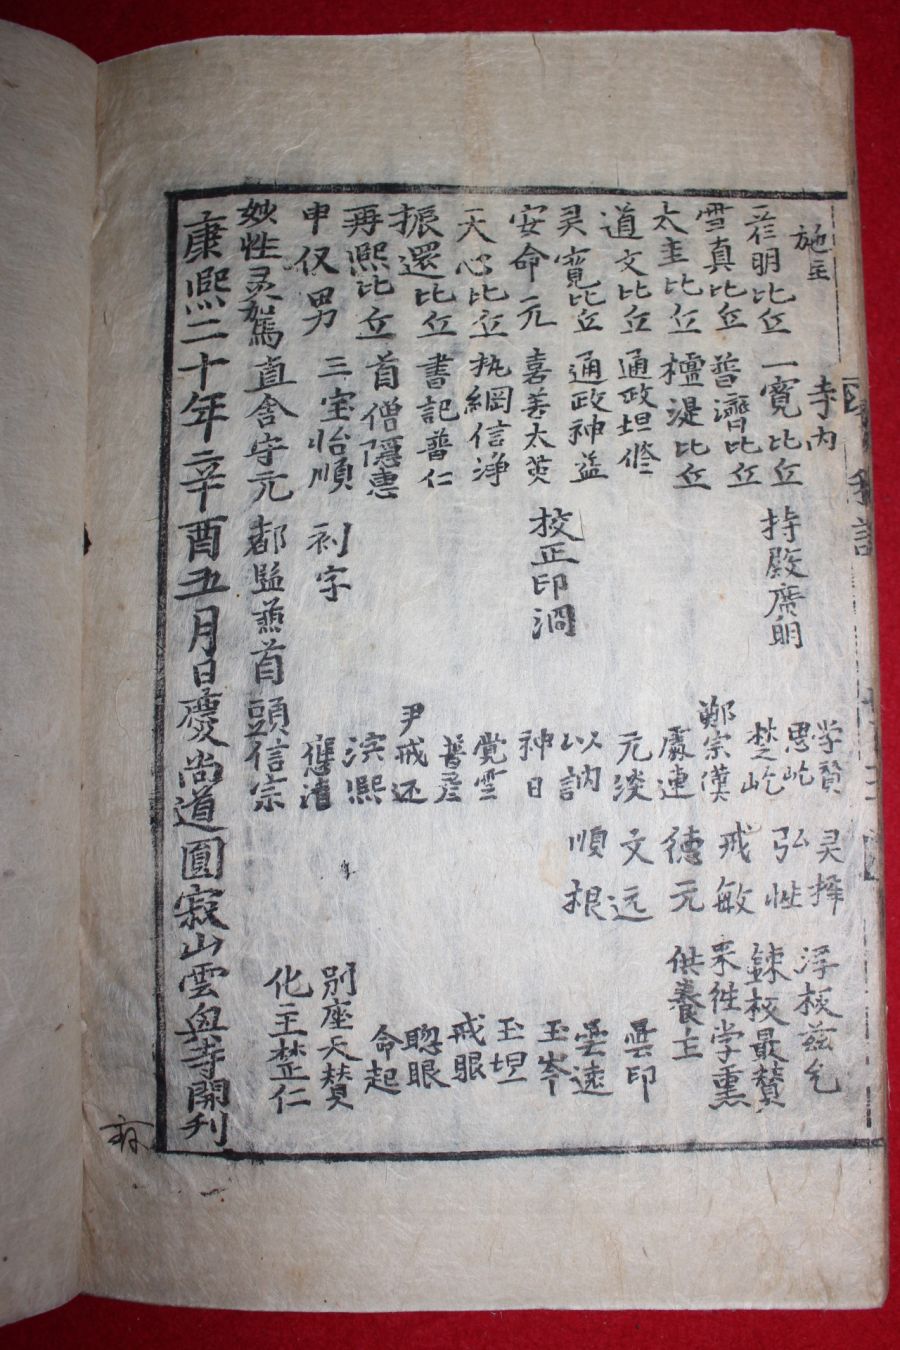 施主 寺內 学贊 灵擇 浮板玆允
彦明比丘 一寬比丘 持殿廣明 思屹 弘性 鍊板最贊
雪真比丘 普濟比丘 楚屹 戒敏 学熏
太圭比丘 檀湜比丘 鄭宗漢 德元 供養主
道文比丘 通政坦修 處連 文远 曇印
灵寬比丘 通政神益 元淡 順根 雲遠
安命元 嘉善太英 校正印澗 以訥 玉岑
天心比丘 執綱信淨 神日 玉坦
振還比丘 書記普仁 覺雪 戒眼
再熙比丘 首僧隱惠 尹戒还 聰眼
申仅男 三宝怡順 刻字 演熙 命起
妙性灵駕 直舍守元 都監兼首頭信宗 別座天贊
化主楚仁
康熙二十年辛酉五月日慶尚道圓寂山雲興寺開刊